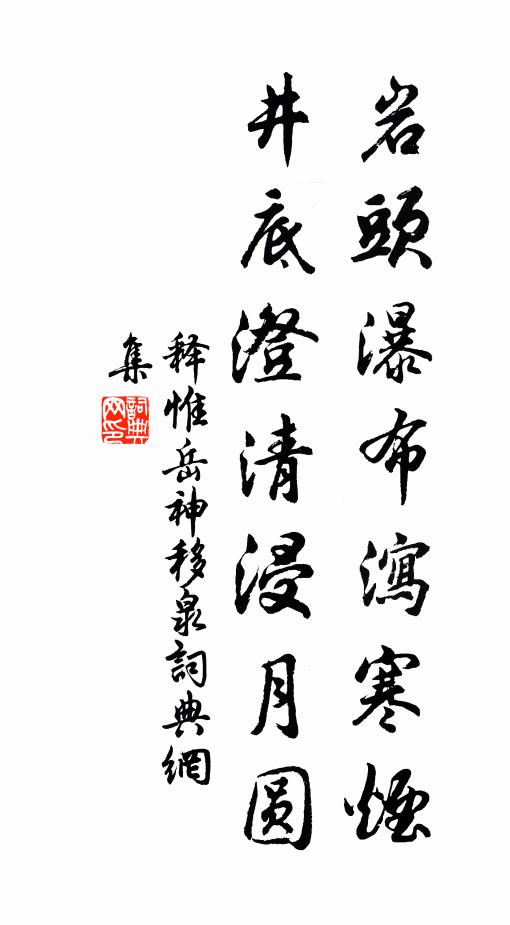 岩頭瀑布瀉寒煙
井底澄清浸月圆
释惟岳神移泉詞典網
集
詞典網印